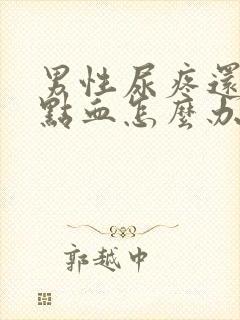 男性尿疼還
點血怎麼办
郭越中